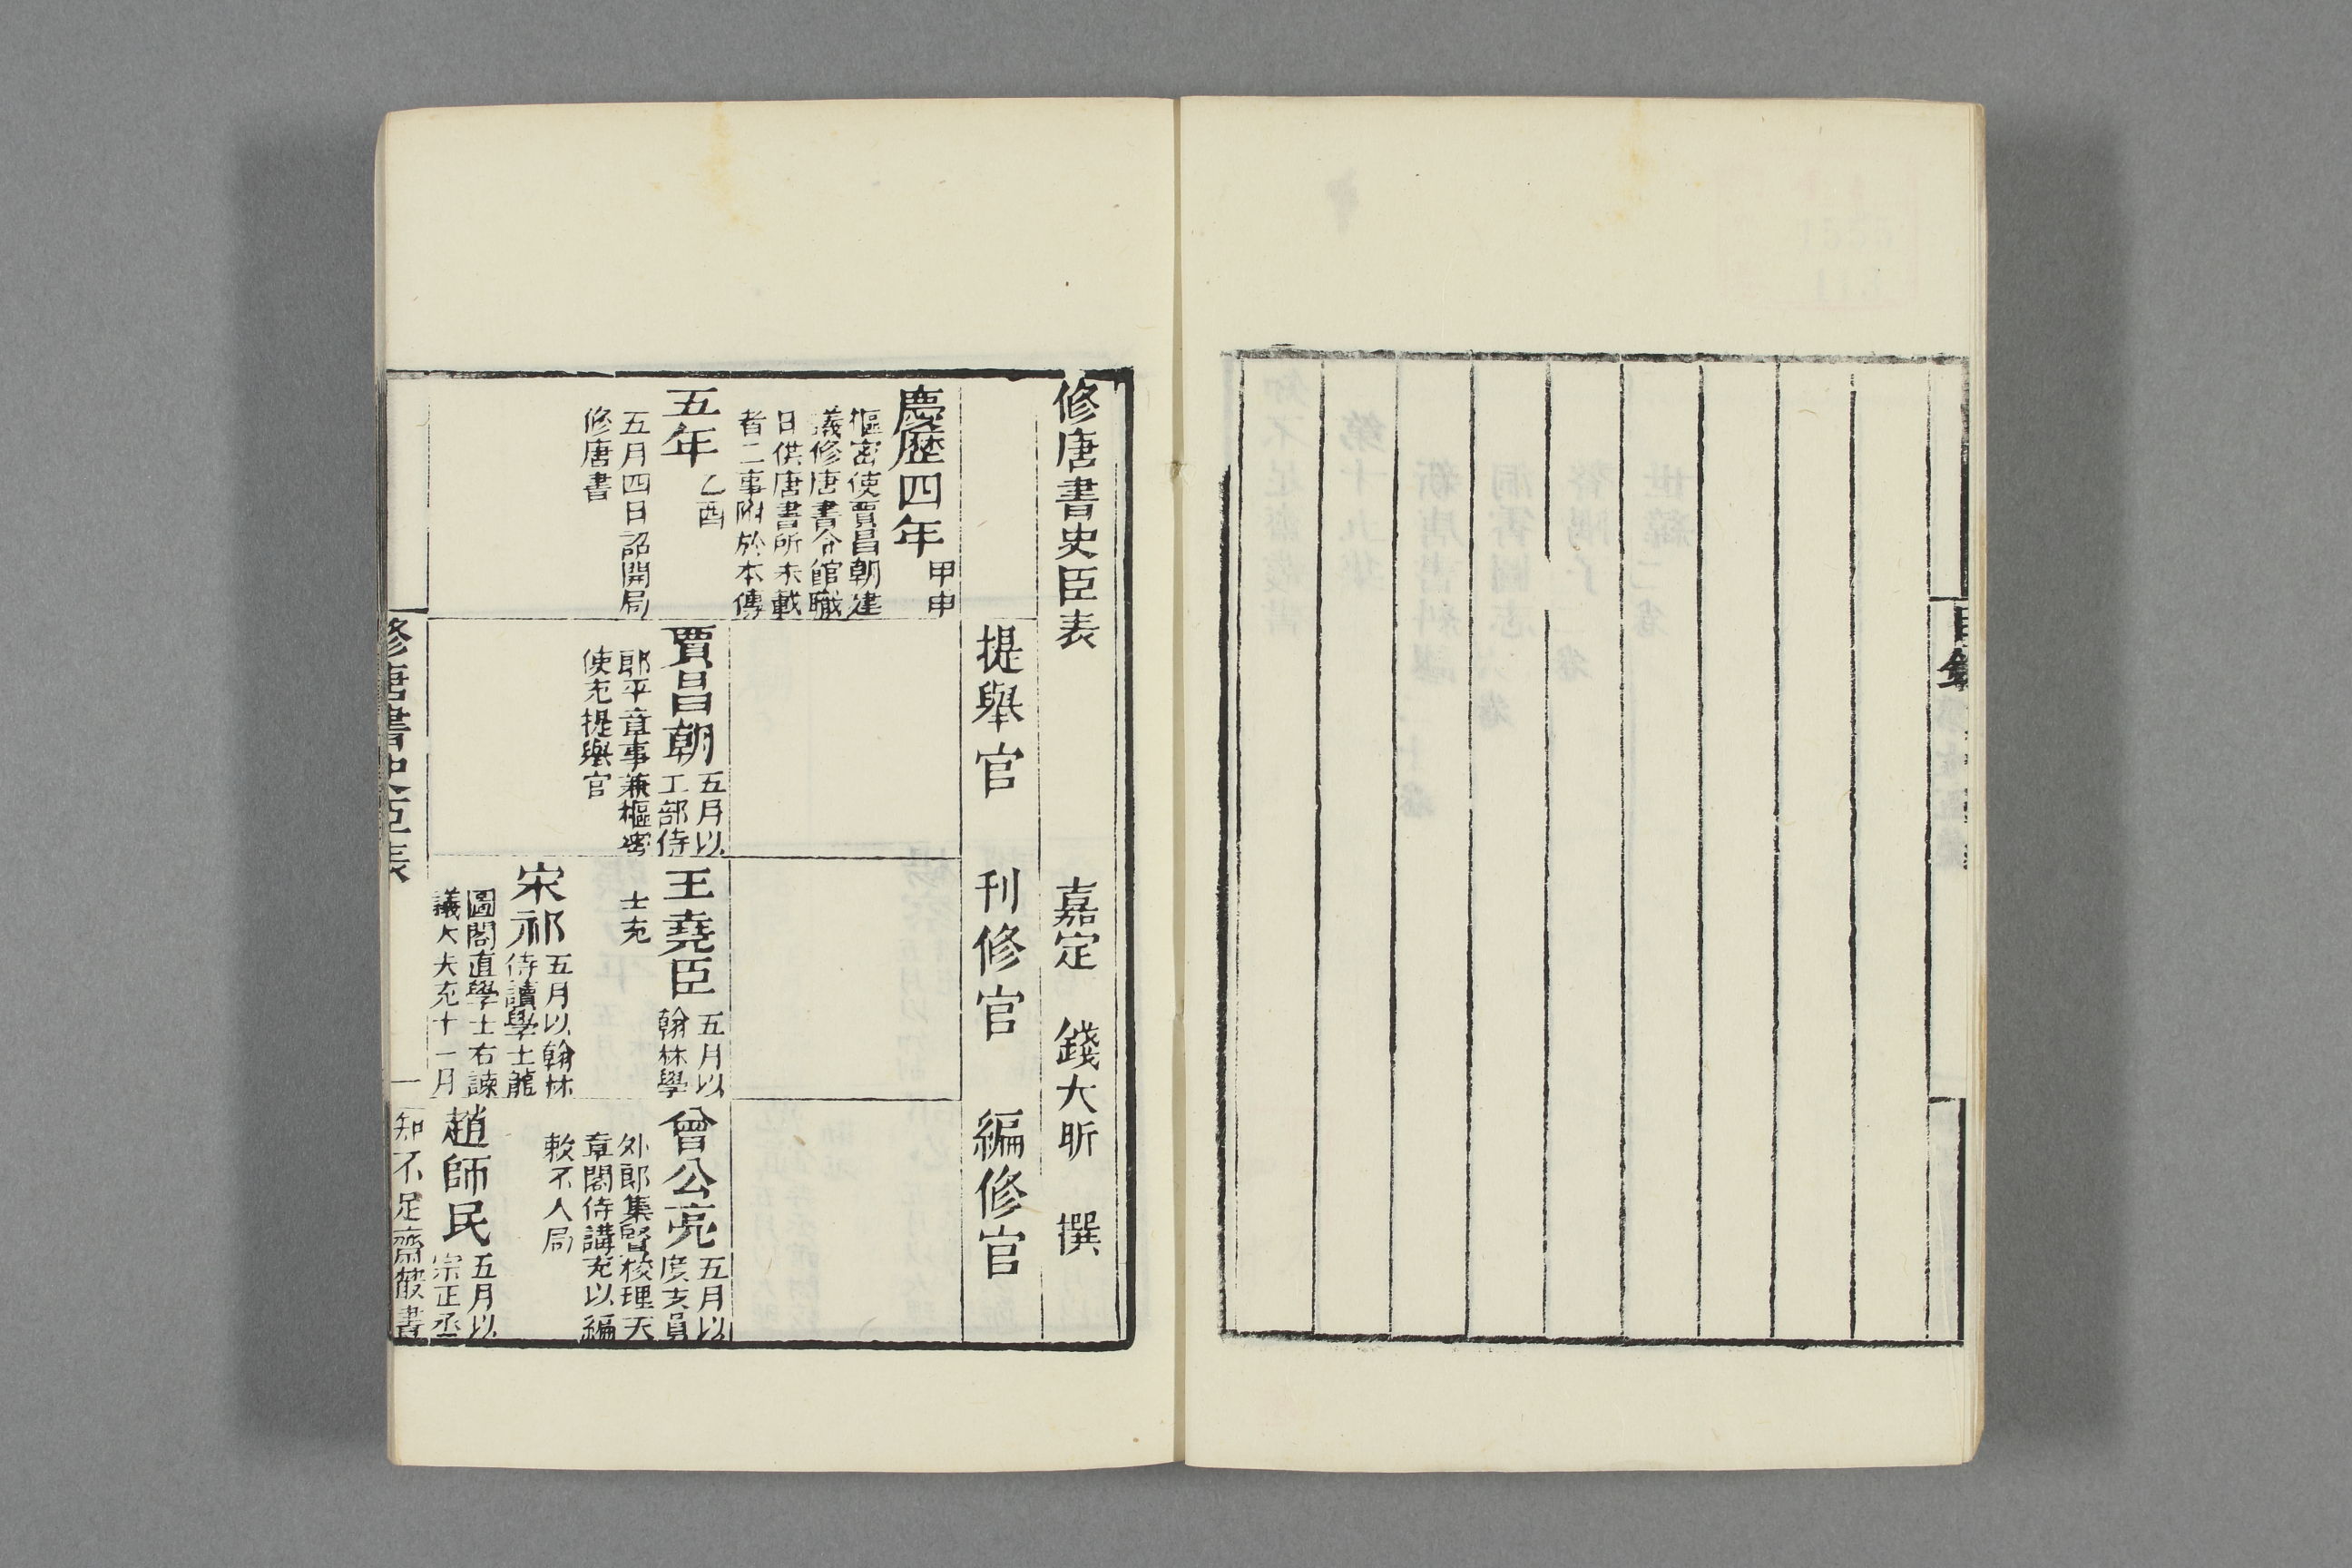 目錄
修唐書史臣表
嘉定 錢大昕 撰
提舉官 刊修官 編修官
慶歷四年 甲申
樞密使賈昌朝建
議修唐書令館職
日供唐書所未載
者二事附於本傳
五年 乙酉
五月四日詔開局
修唐書
賈昌朝 五月以
工部侍
郎平章事兼樞密
使充提舉官
王堯臣 五月以
翰林學
士充
宋祁 五月以翰林
侍讀學士龍
圖閣直學士右諫
議大夫充十一月
曾公亮 五月以
度支員
外郎集賢校理天
章閣侍講充以編
敕不入局
趙師民 五月以
宗正丞
修唐書史臣表
一
知不足齋叢書